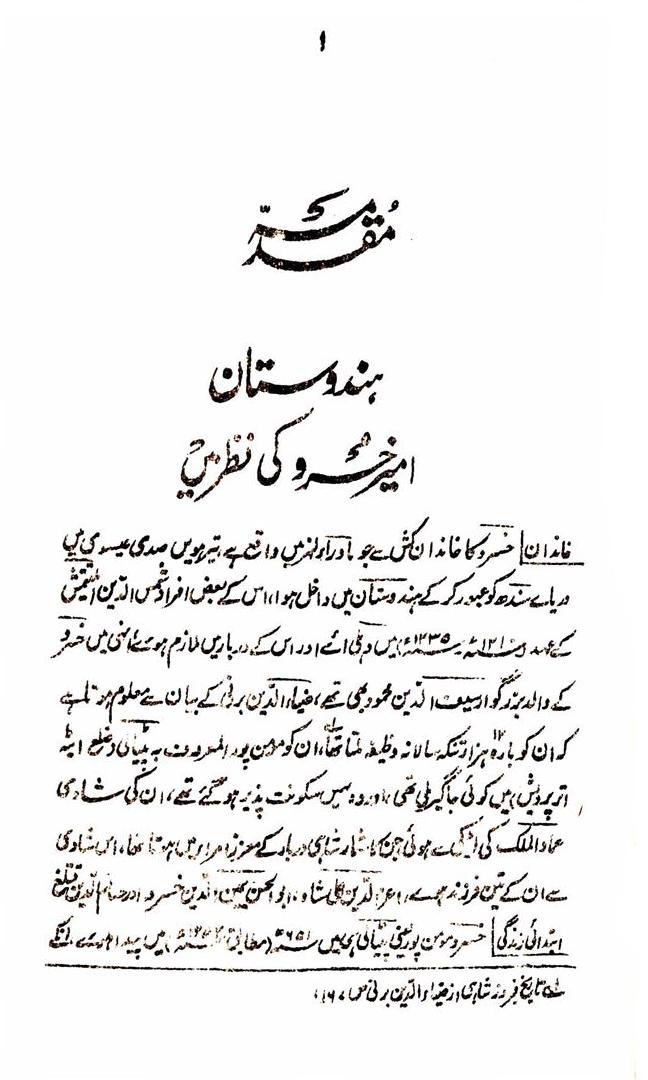 ۱
مُقدّمہ
ہندوستان
امیر خسرو کی نظر میں
خاندان | خسرو کا خاندان کش سے جو ماوراء النہر میں واقع ہے، تیرہویں صدی عیسوی میں
دریائے سندھ کو عبور کر کے ہندوستان میں داخل ہوا، اس کے بعض افراد شمس الدین التیتمش
کے عہد (۱۲۱۰ء-۱۲۳۵ء) میں دہلی آئے اور اس کے دربار میں ملازم ہوئے، انہی میں خسرو
کے والد بزرگوار سیف الدین محمود بھی تھے، ضیاء الدین برنی کے بیان سے معلوم ہوتا ہے
کہ ان کو بارہ ہزار تنکہ سالانہ وظیفہ ملتا تھا، ان کو مومن پور المعروف بہ پٹیالی (ضلع ایٹہ
اترپردیش) میں کوئی جاگیر ملی تھی، اور وہ یہیں سکونت پذیر ہو گئے تھے، ان کی شادی
عماد الملک کی لڑکی سے ہوئی جن کا شمار شاہی دربار کے معزز امراء میں ہوتا تھا، اس شادی
سے ان کے تین فرزند ہوئے، اعز الدین علی شاہ، ابو الحسن یمین الدین خسرو، اور حسام الدین قتلغ
ابتدائی زندگی | خسرو مومن پور یعنی پٹیالی ہی میں ۶۵۱ھ (مطابق ۱۲۵۳ء) میں پیدا ہوئے، انکے
لہ تاریخ فیروز شاہی از ضیاء الدین برنی ص